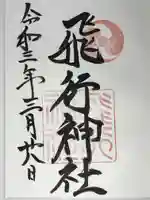 飛行神社
令和三年三月廿八日